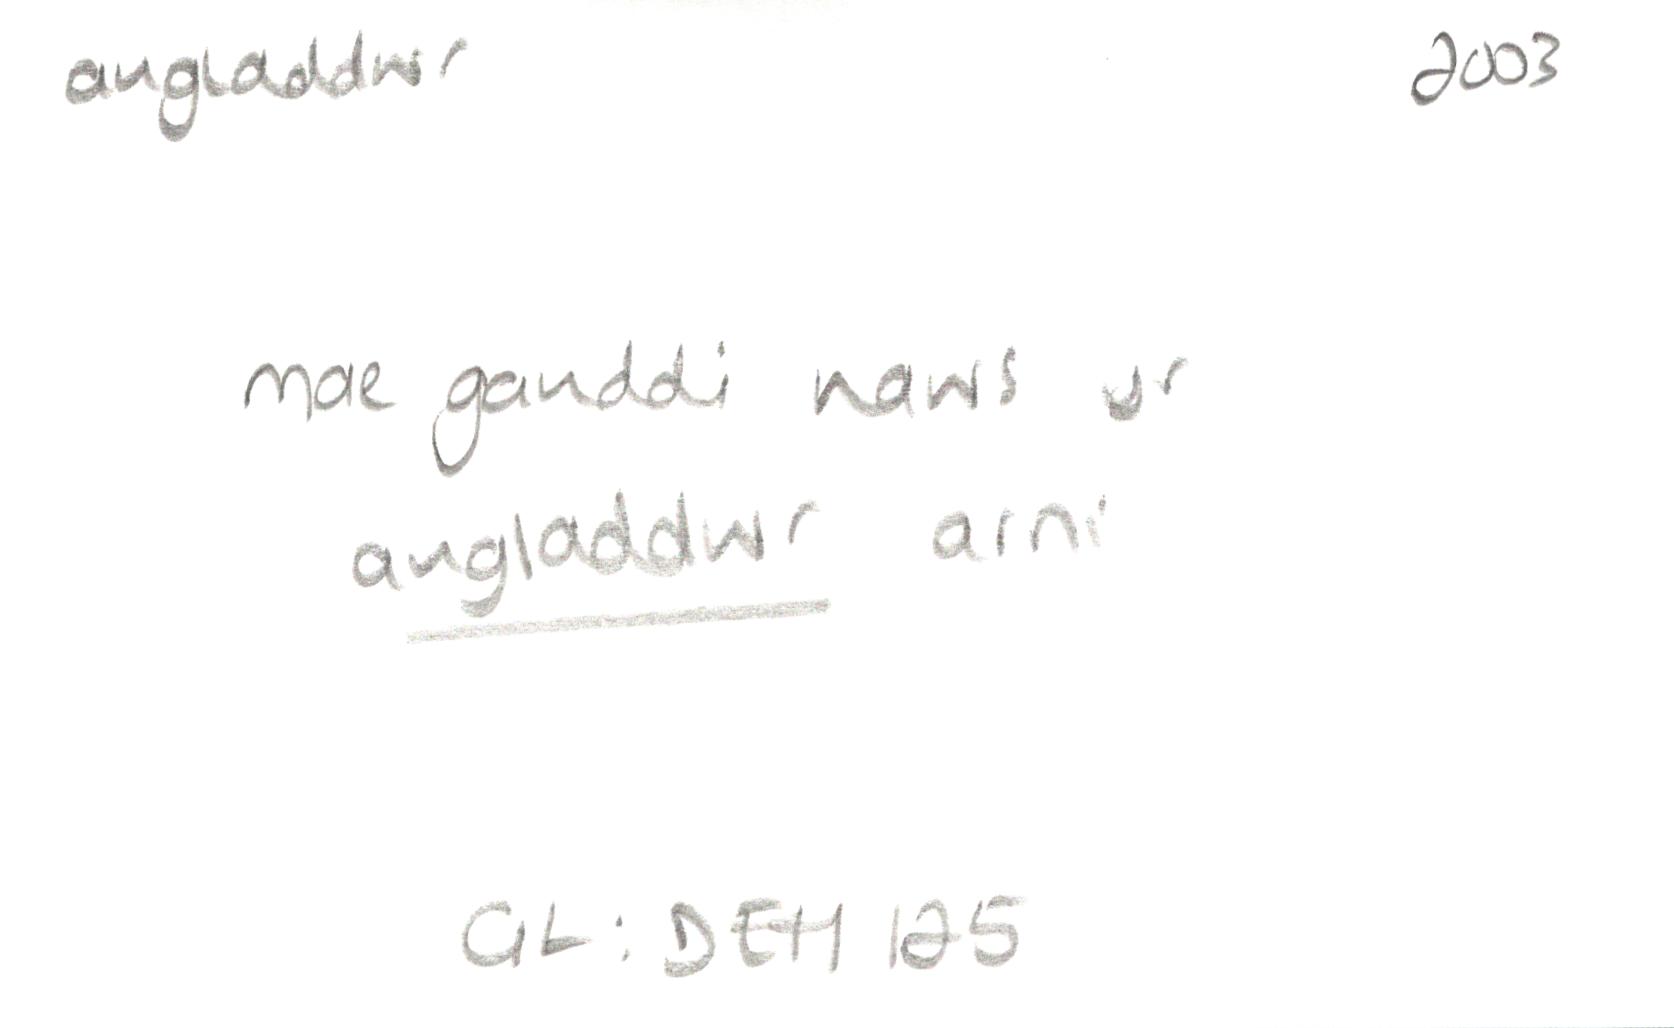 angladdwr 2003
mae ganddi naws yr
angladdwr arni
GL: DEH 125